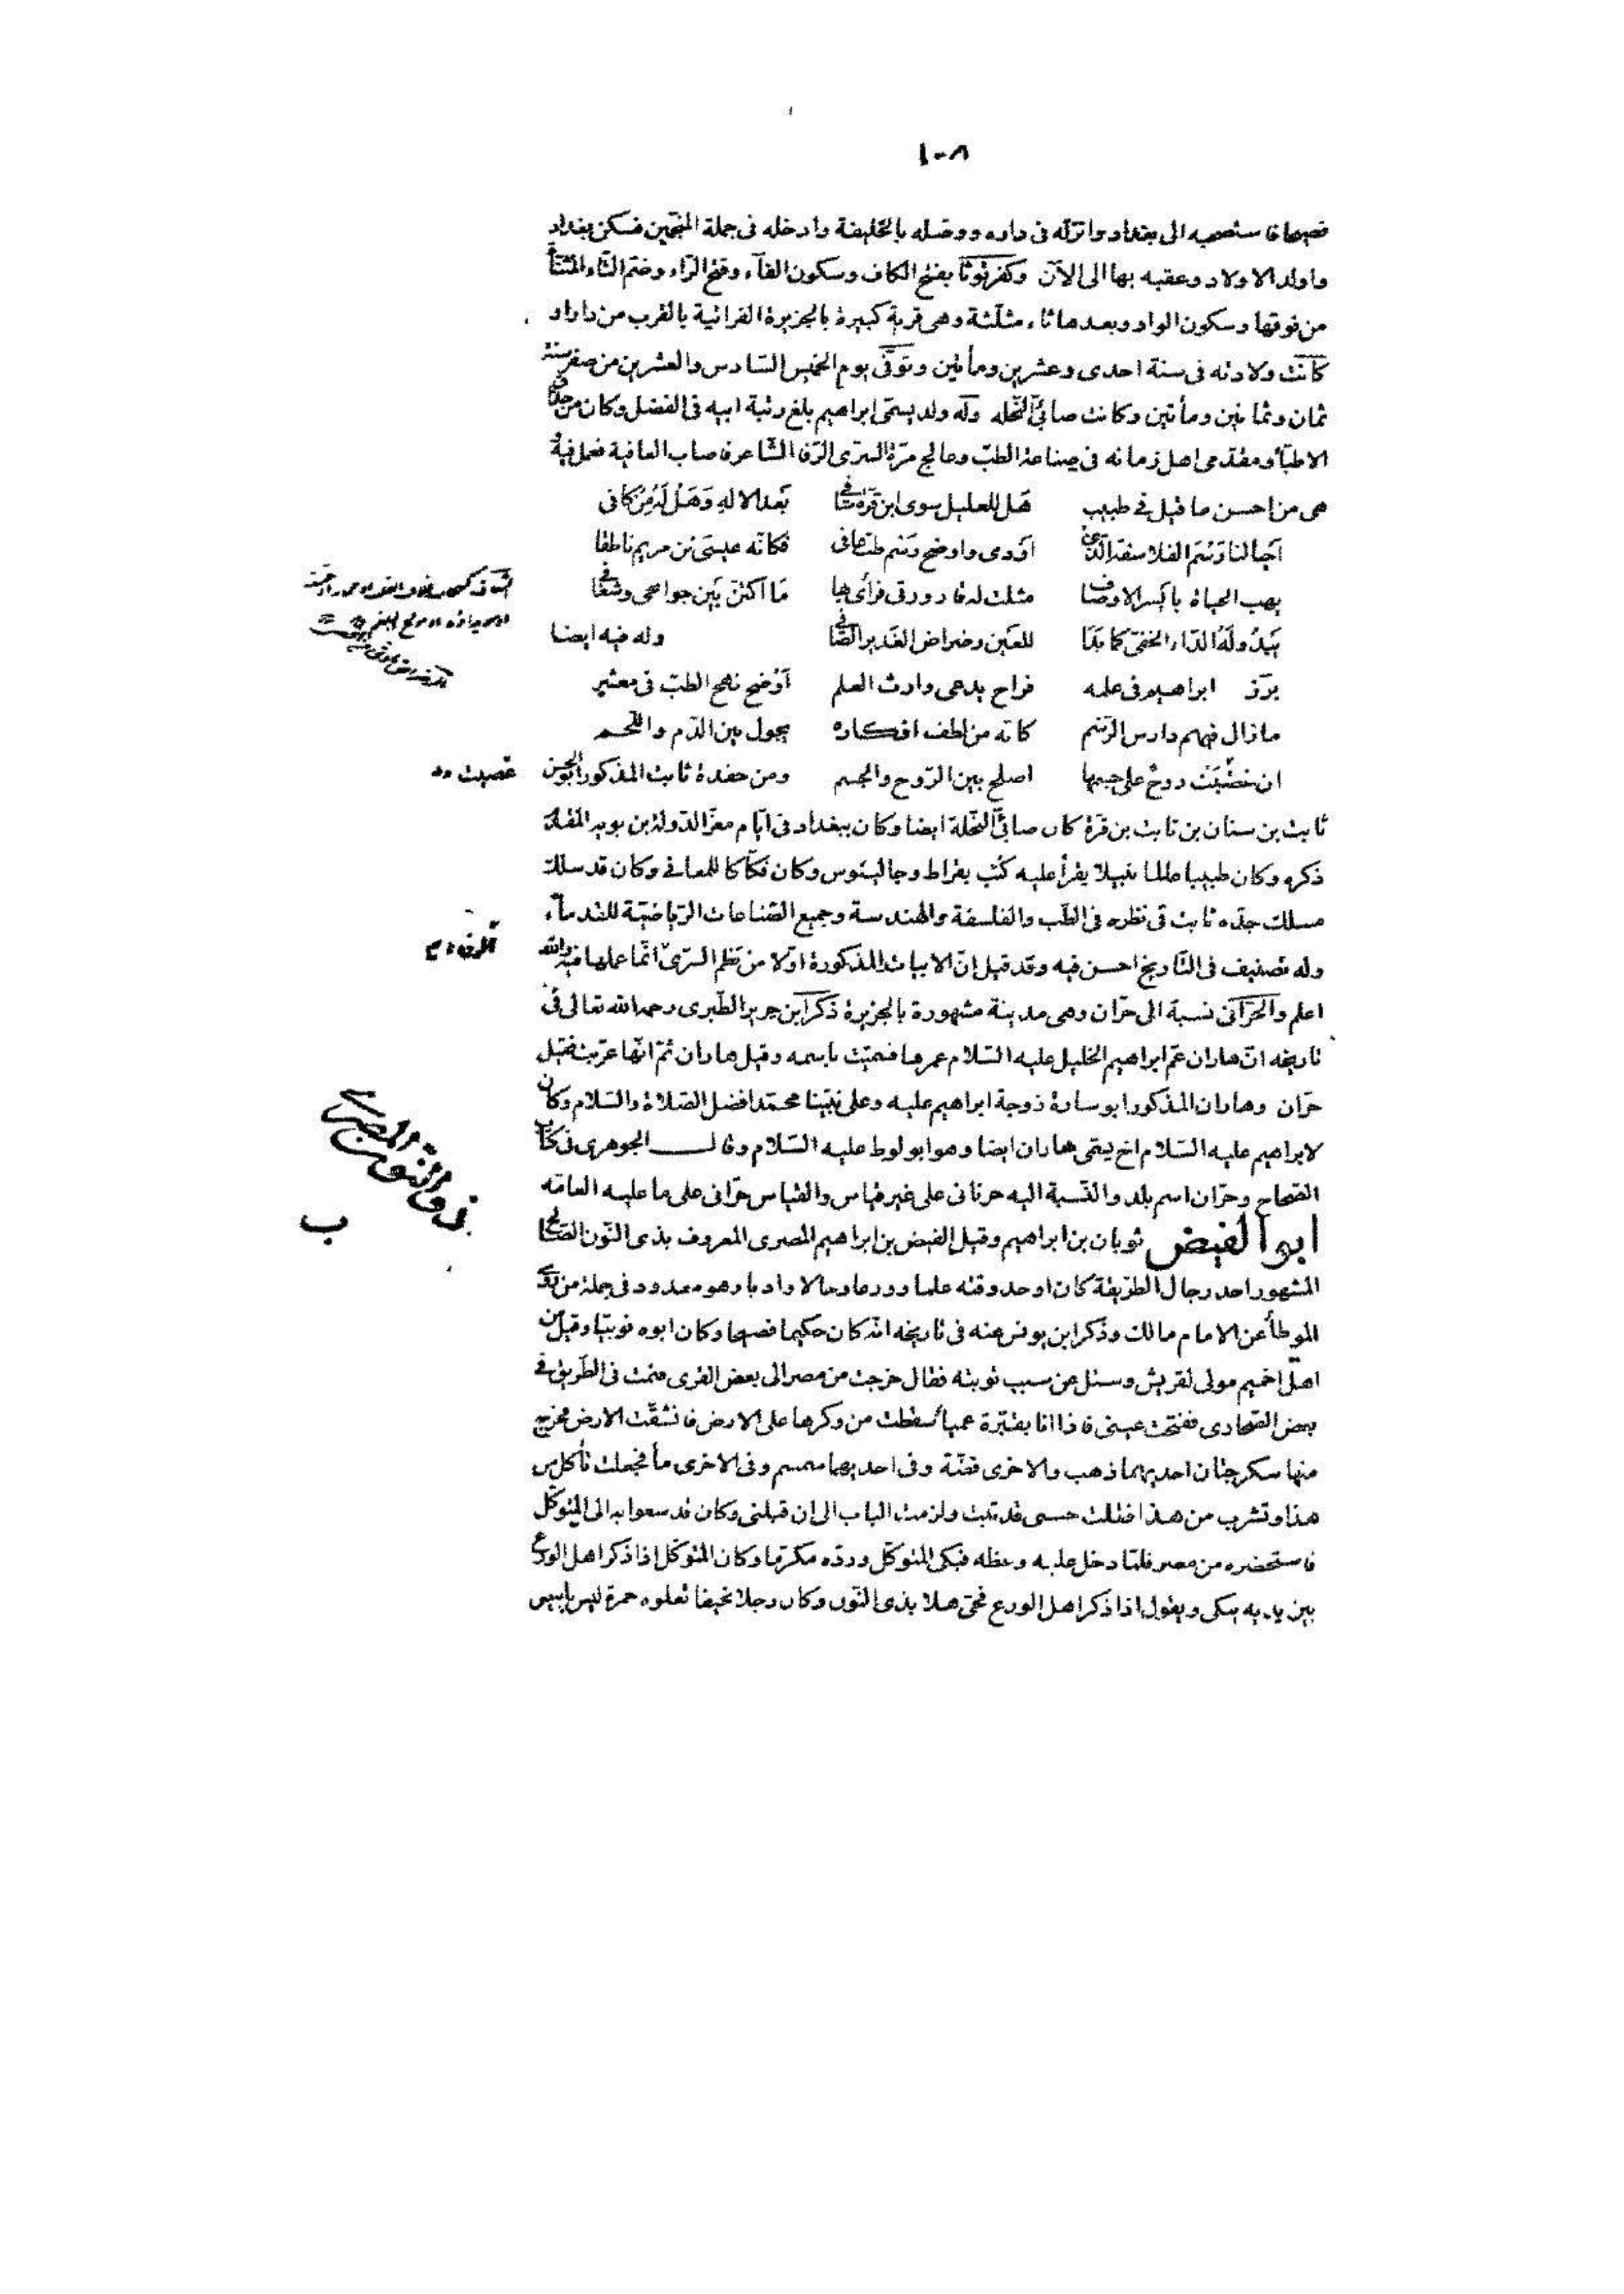 ١٠٨
فصيحا فاستصحبه الى بغداد وانزله فى داره ووصله بالخليفة وادخله فى جملة المنجّمين فسكن بغداد
واولد الاولاد وعقبه بها الى الآن وكفرتوثا بفتح الكاف وسكون الفآء وفتح الرّاء وضم التّاء المثنّاة
من فوقها وسكون الواو وبعدها ثاء مثلّثة وهى قرية كبيرة بالجزيرة الفراتية بالقرب من دارا و
كانت ولادته فى سنة احدى وعشرين ومأتين وتوفّى يوم الخميس السّادس والعشرين من صفر سنة
ثمان وثمانين ومأتين وكانت صابئىّ النّحله وله ولد يسمّى ابراهيم بلغ رتبة ابيه فى الفضل وكان من حذّاق
الاطبّاء ومقدّمى اهل زمانه فى صناعة الطبّ وعالج مرّة السّرى الرّفّا الشّاعر فاصاب العافية فعمل فيه
هى من احسن ما قيل فى طبيب هَل للعليل سوى ابن قرّة شافى بَعد الاله وَهَل لَهُ مِن كافى
اَحيا لنا رَسْمَ الفلاسفة الّذى اَودى واوضح رسم طبّ عافى فكانّه عيسَى بن مريم ناطقا
يهب الحياة بأيسر الاوصاف مثلت له قارورتى فرأى بها مَا اكتنّ بَين جوانحى وشغافى
يَبدُو لَهُ الدّاء الخفىّ كما بَدَا للعَين رضراض الغدير الصّافى وله فيه ايضا
برّز ابراهيم فى علمه فراح يدعى وارث العلم اَوْضح نهج الطبّ فى معشر
ما زال فيهم دارس الرّسم كانّه من لطف افكاره يجول بين الدّم واللّحم
ان غضّبَت روحٌ على جسمها اصلح بين الرّوح والجسم ومن حفدة ثابت المذكور ابو الحسن
غضبت
ثابت بن سنان بن ثابت بن قرّة كان صابئىّ النّحلة ايضا وكان ببغداد فى ايّام معزّ الدّولة بن بويه المقدّم
ذكره وكان طبيبا عالما نبيلا يقرأ عليه كتب بقراط وجالينوس وكان فكّاكا للمعانى وكان قد سلك
مسلك جدّه ثابت فى نظره فى الطّب والفلسفة والهندسة وجميع الصّناعات الرّياضيّة للقدمآء
وله تصنيف فى التّاريخ احسن فيه وقد قيل انّ الابيات المذكورة اوّلا من نظم السّرىّ انّما عملها فيه والله
اعلم والحَرّانى نسبة الى حرّان وهى مدينة مشهورة بالجزيرة ذكر ابن جرير الطّبرى رحمه الله تعالى فى
تاريخه انّ هاران عمّ ابراهيم الخليل عليه السّلام عمرها فسمّيت باسمه وقيل هاران ثمّ انّها عرّبت فقيل
حرّان وهاران المذكور ابو سارة زوجة ابراهيم عليه وعلى نبيّنا محمّد افضل الصّلاة والسّلام وكان
لابراهيم عليه السّلام اخ يسمّى هاران ايضا وهو ابو لوط عليه السّلام وقال الجوهرى فى كتاب
الصّحاح وحرّان اسم بلد والنّسبة اليه حرنانى على غير قياس والقياس حرّانى على ما عليه العامّه
ذو النون المصرى
ب
ابو الفيض ثوبان بن ابراهيم وقيل الفيض بن ابراهيم المصرى المعروف بذى النّون الصّالح
المشهور احد رجال الطّريقة كان اوحد وقته علما وورعا وحالا وادبا وهو معدود فى جملة من روى
الموطأ عن الامام مالك وذكر ابن يونس عنه فى تاريخه انّه كان حكيما فصيحا وكان ابوه نوبيّا وقيل من
اهل اخميم مولى لقريش وسئل عن سبب توبته فقال خرجت من مصر الى بعض القرى فنمت فى الطّريق فى
بعض الصّحارى ففتحت عينى فاذا انا بقنبرة عمياء سقطت من وكرها على الارض فانشقّت الارض فخرج
منها سكرجتان احديهما ذهب والاخرى فضّة وفى احديهما سمسم وفى الاخرى مآء فجعلت تأكل من
هذا وتشرب من هذا فقلت حسبى قد تبت ولزمت الباب الى ان قبلنى وكان قد سعوا به الى المتوكّل
فاستحضره من مصر فلمّا دخل عليه وعظه فبكى المتوكّل وردّه مكرّما وكان المتوكّل اذا ذكر اهل الورع
بين يديه يبكى ويقول اذا ذكر اهل الورع فحىّ هلا بذى النّون وكان رجلا نحيفا تعلوه حمرة ليس بابيض